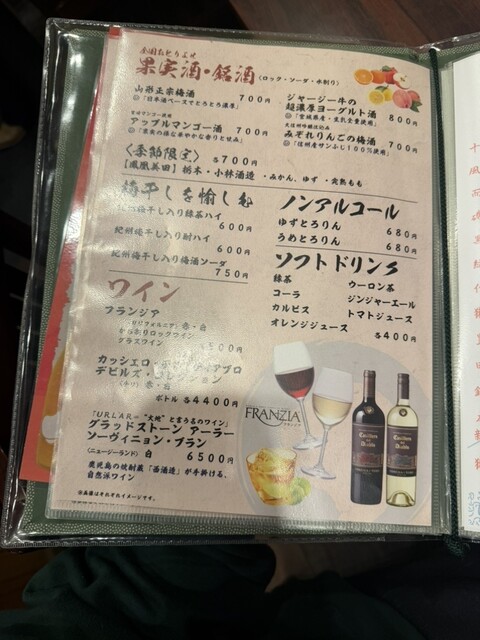 全国おとりよせ
果実酒・銘酒 (ロック・ソーダ・水割り)
山形正宗梅酒 700円
◎「日本酒ベースでとろとろ濃厚」
アップルマンゴー酒 700円
ジャージー牛の
超濃厚ヨーグルト酒 800円
◎「宮城県産・生乳全量使用」
みぞれりんごの梅酒 700円
◎「信州産サンふじ100%使用」
〈季節限定〉 各700円
【鳳凰美田】 栃木・小林酒造 ・みかん、ゆず ・完熟もも
梅干しを愉しむ
紀州梅干し入り緑茶ハイ
600円
紀州梅干し入り酎ハイ
600円
紀州梅干し入り梅酒ソーダ
750円
ノンアルコール
ゆずとろりん 680円
うめとろりん 680円
ソフトドリンク
緑茶 ウーロン茶
コーラ ジンジャーエール
カルピス トマトジュース
オレンジジュース 各400円
ワイン
フランジア
(カリフォルニア) 赤・白
かち割りロックワイン
グラスワイン 500円
カッシェロ・
デビルズ・
(チリ) 赤・白
ボトル 各4400円
「URLAR="大地"と言う名のワイン」
グラッドストーン アーラー
ソーヴィニョン・ブラン
(ニュージーランド) 白 6500円
鹿児島の焼酎蔵「西酒造」が手掛ける、
自然派ワイン
※画像はそれぞれイメージです。
FRANZIA
フランジア
Casillero
del
Diablo
Casillero
del
Diablo